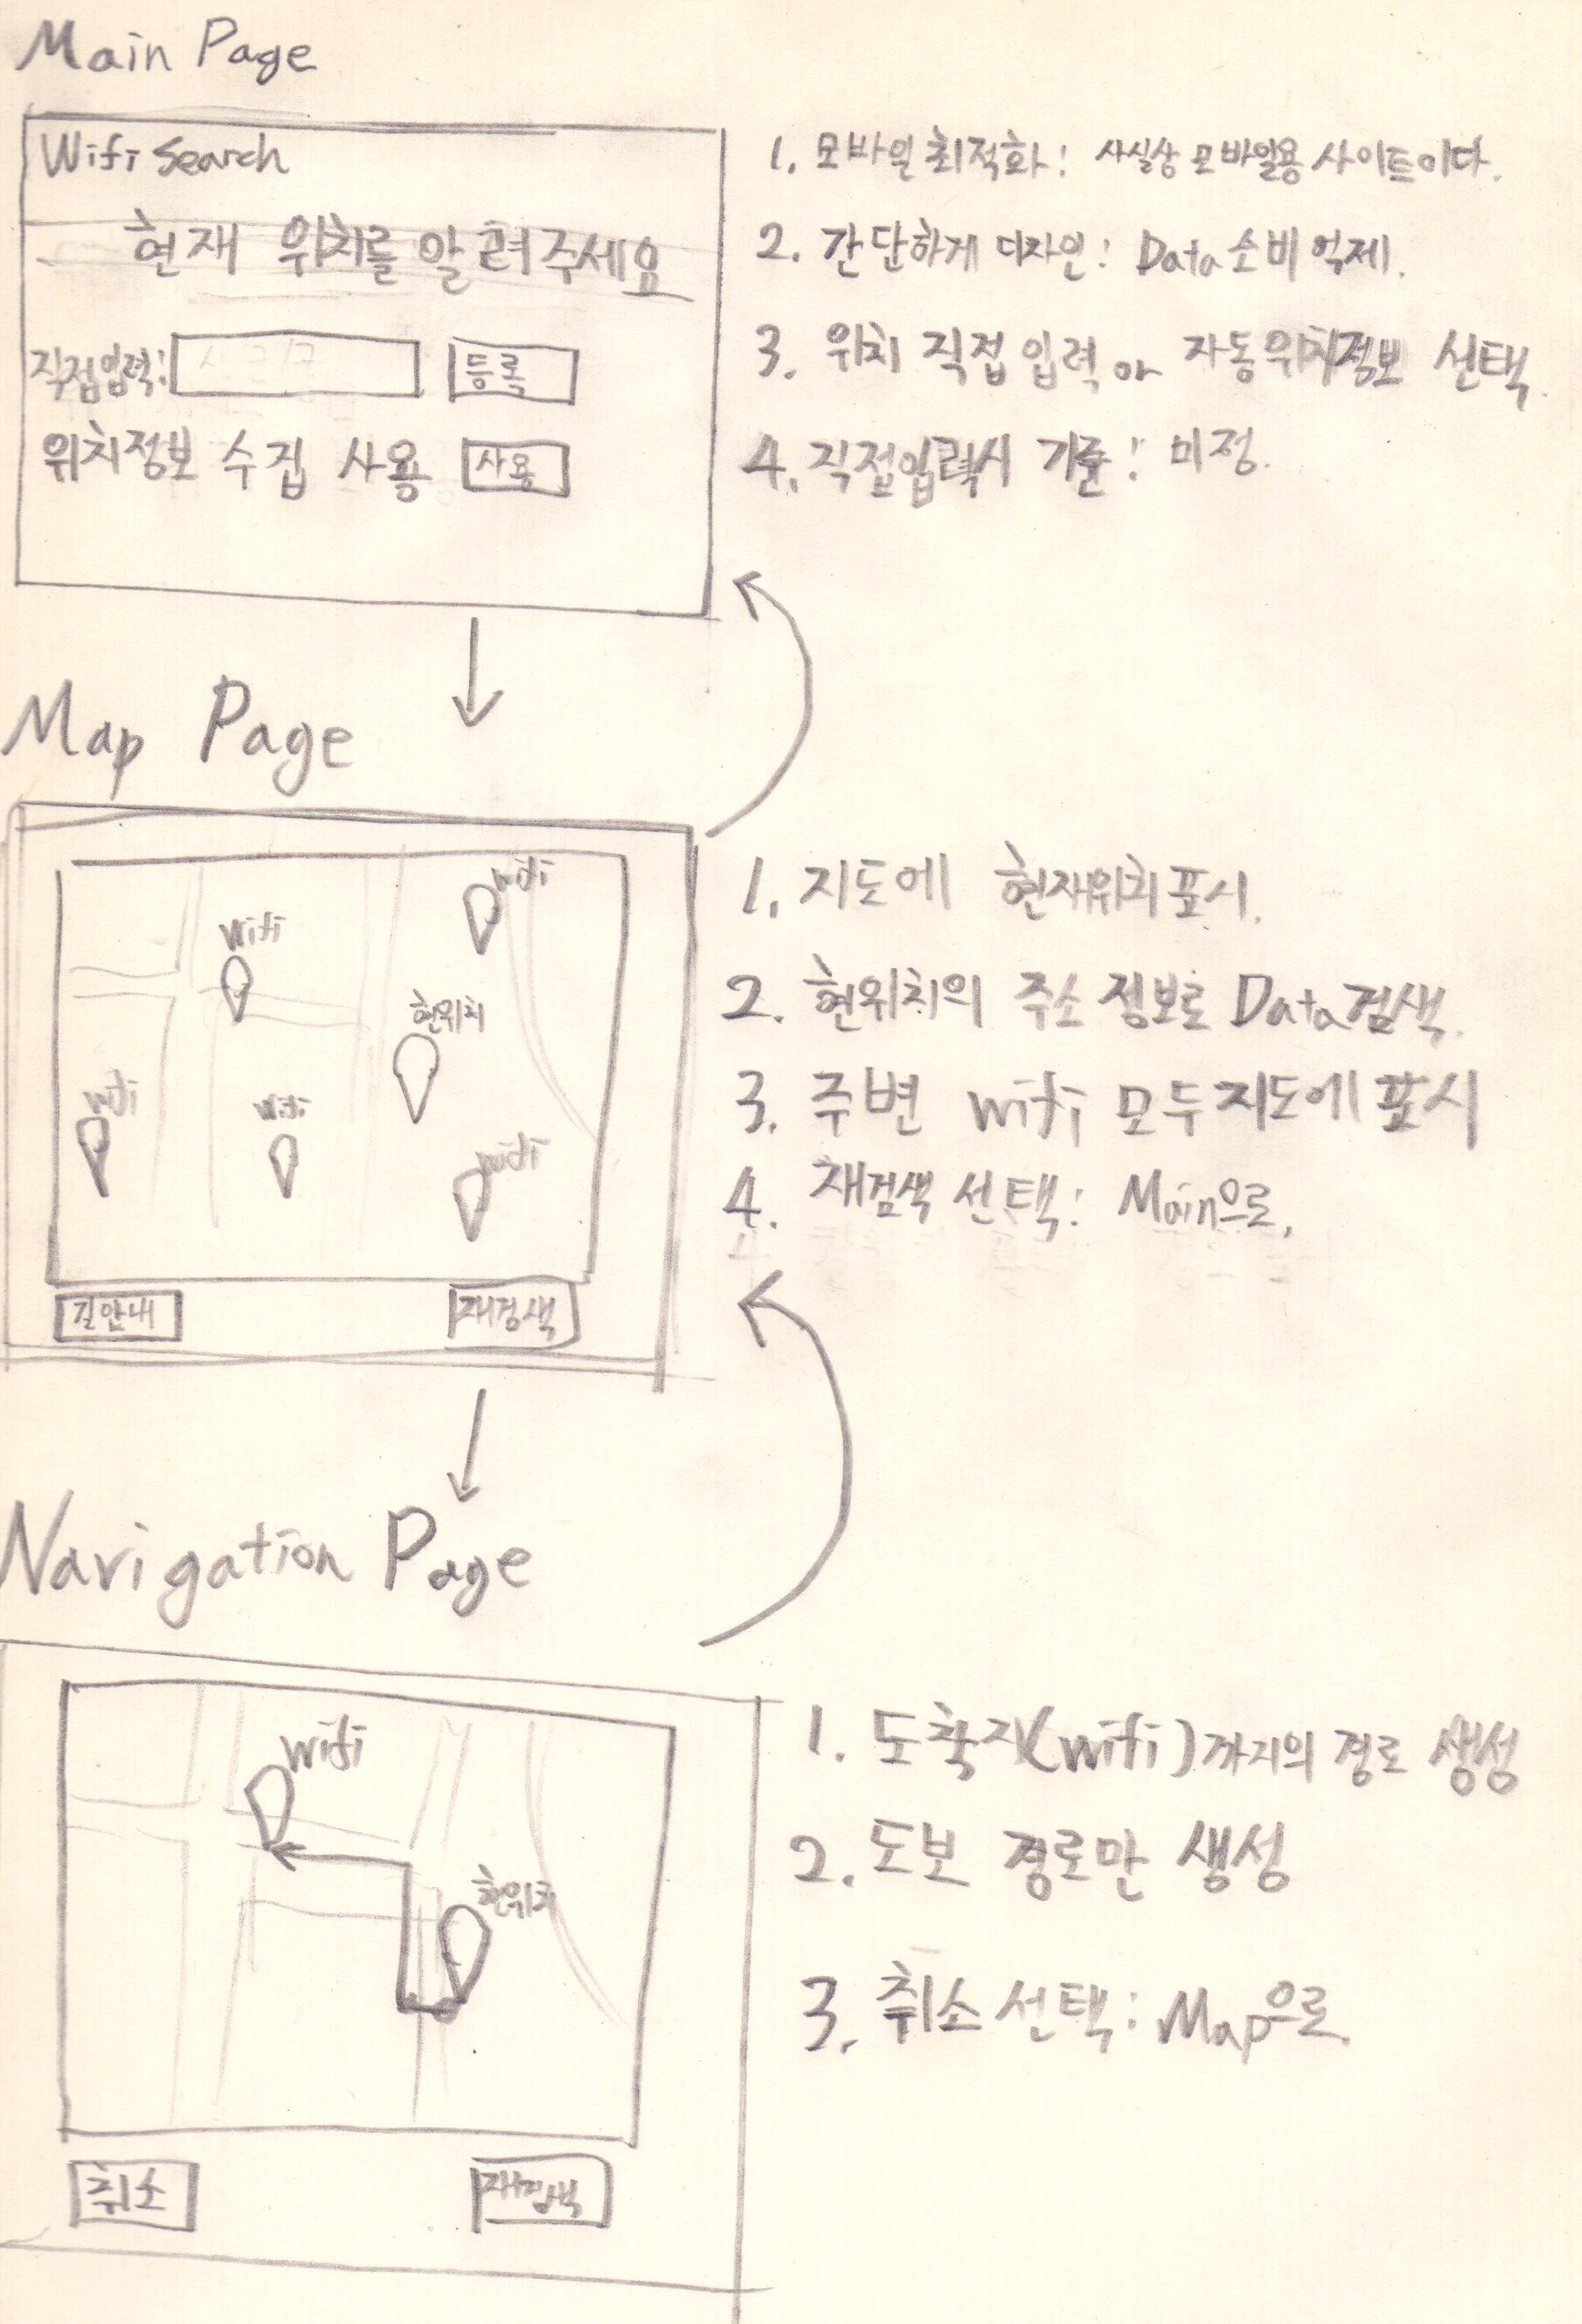 Main Page
Wifi Search
현재 위치를 알려주세요
직접입력:
등록
위치정보 수집 사용
사용
1. 모바일 최적화: 사실상 모바일용 사이트이다.
2. 간단하게 디자인: Data소비 억제.
3. 위치 직접 입력 or 자동위치정보 선택.
4. 직접입력시 기준: 미정.
Map Page
wifi
wifi
현위치
wifi
wifi
wifi
길안내
재검색
1. 지도에 현재위치 표시.
2. 현위치의 주소 정보로 Data검색.
3. 주변 wifi 모두 지도에 표시
4. 재검색 선택: Main으로.
Navigation Page
wifi
현위치
취소
재검색
1. 도착지(wifi)까지의 경로 생성
2. 도보 경로만 생성
3. 취소 선택: Map으로.